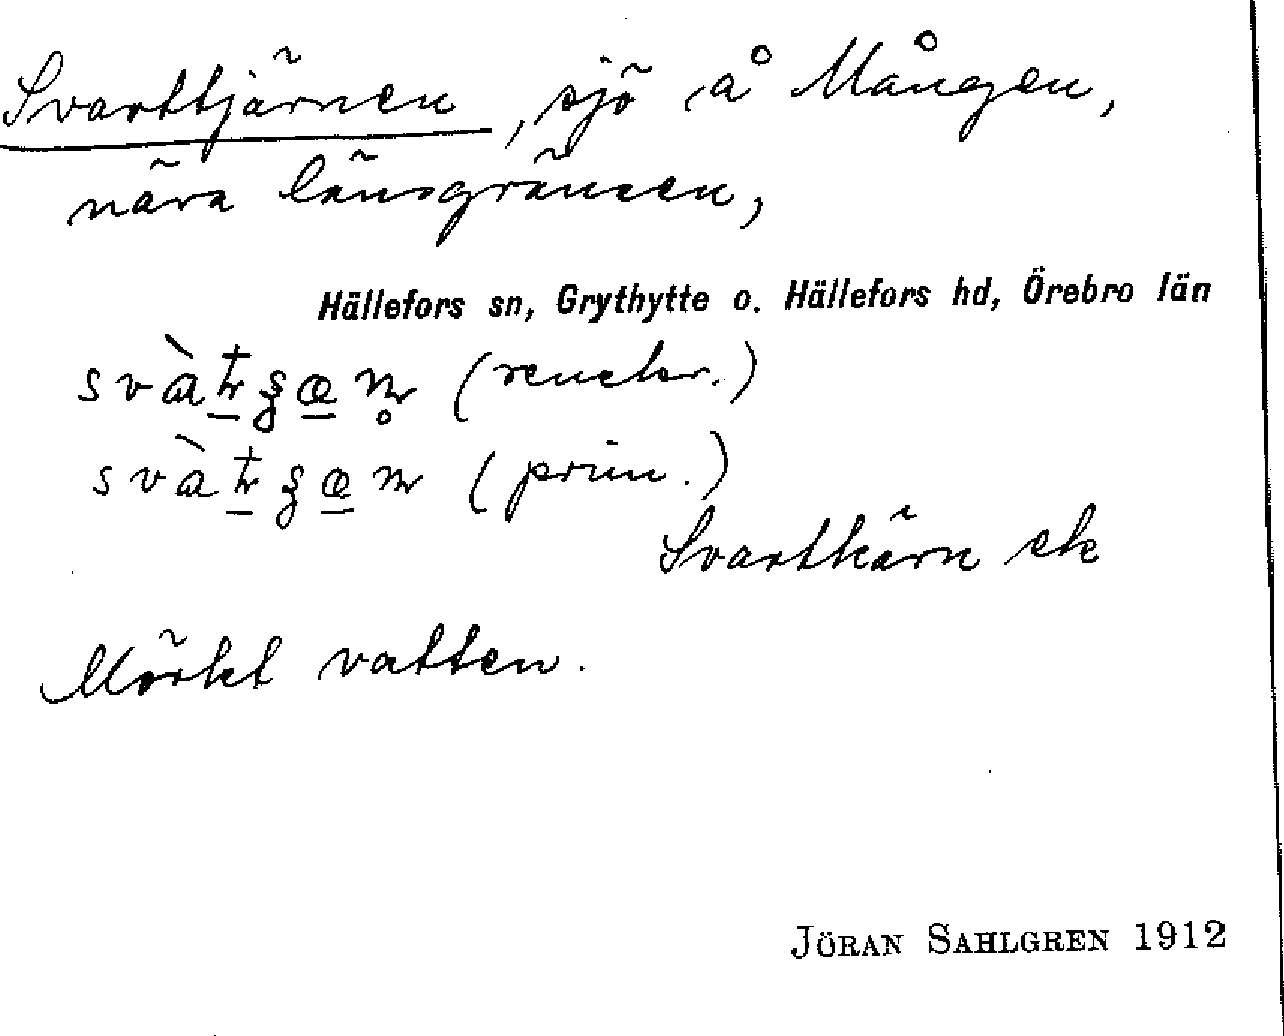 Svarttjärnen, sjö å Mången,
nära länsgränsen,
Hällefors sn, Grythytte o. Hällefors hd, Örebro län
(renskr.)
(prim.)
Svartkärn ek
Mörkt vatten.
JÖRAN SAHLGREN 1912